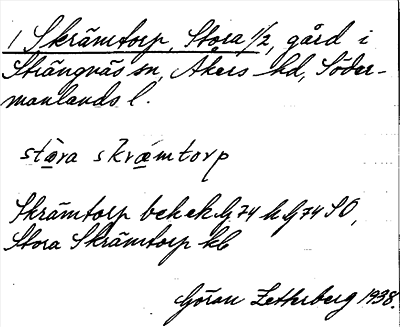 1 Skrämtorp, Stora 1/2, gård i
Strängnäs sn, Åkers hd, Söder-
manlands l.
stæra skræmtorp
Skrämtorp bek ek G 74 h G 74 SO,
Stora Skrämtorp kb
Göran Zetterberg 1938.